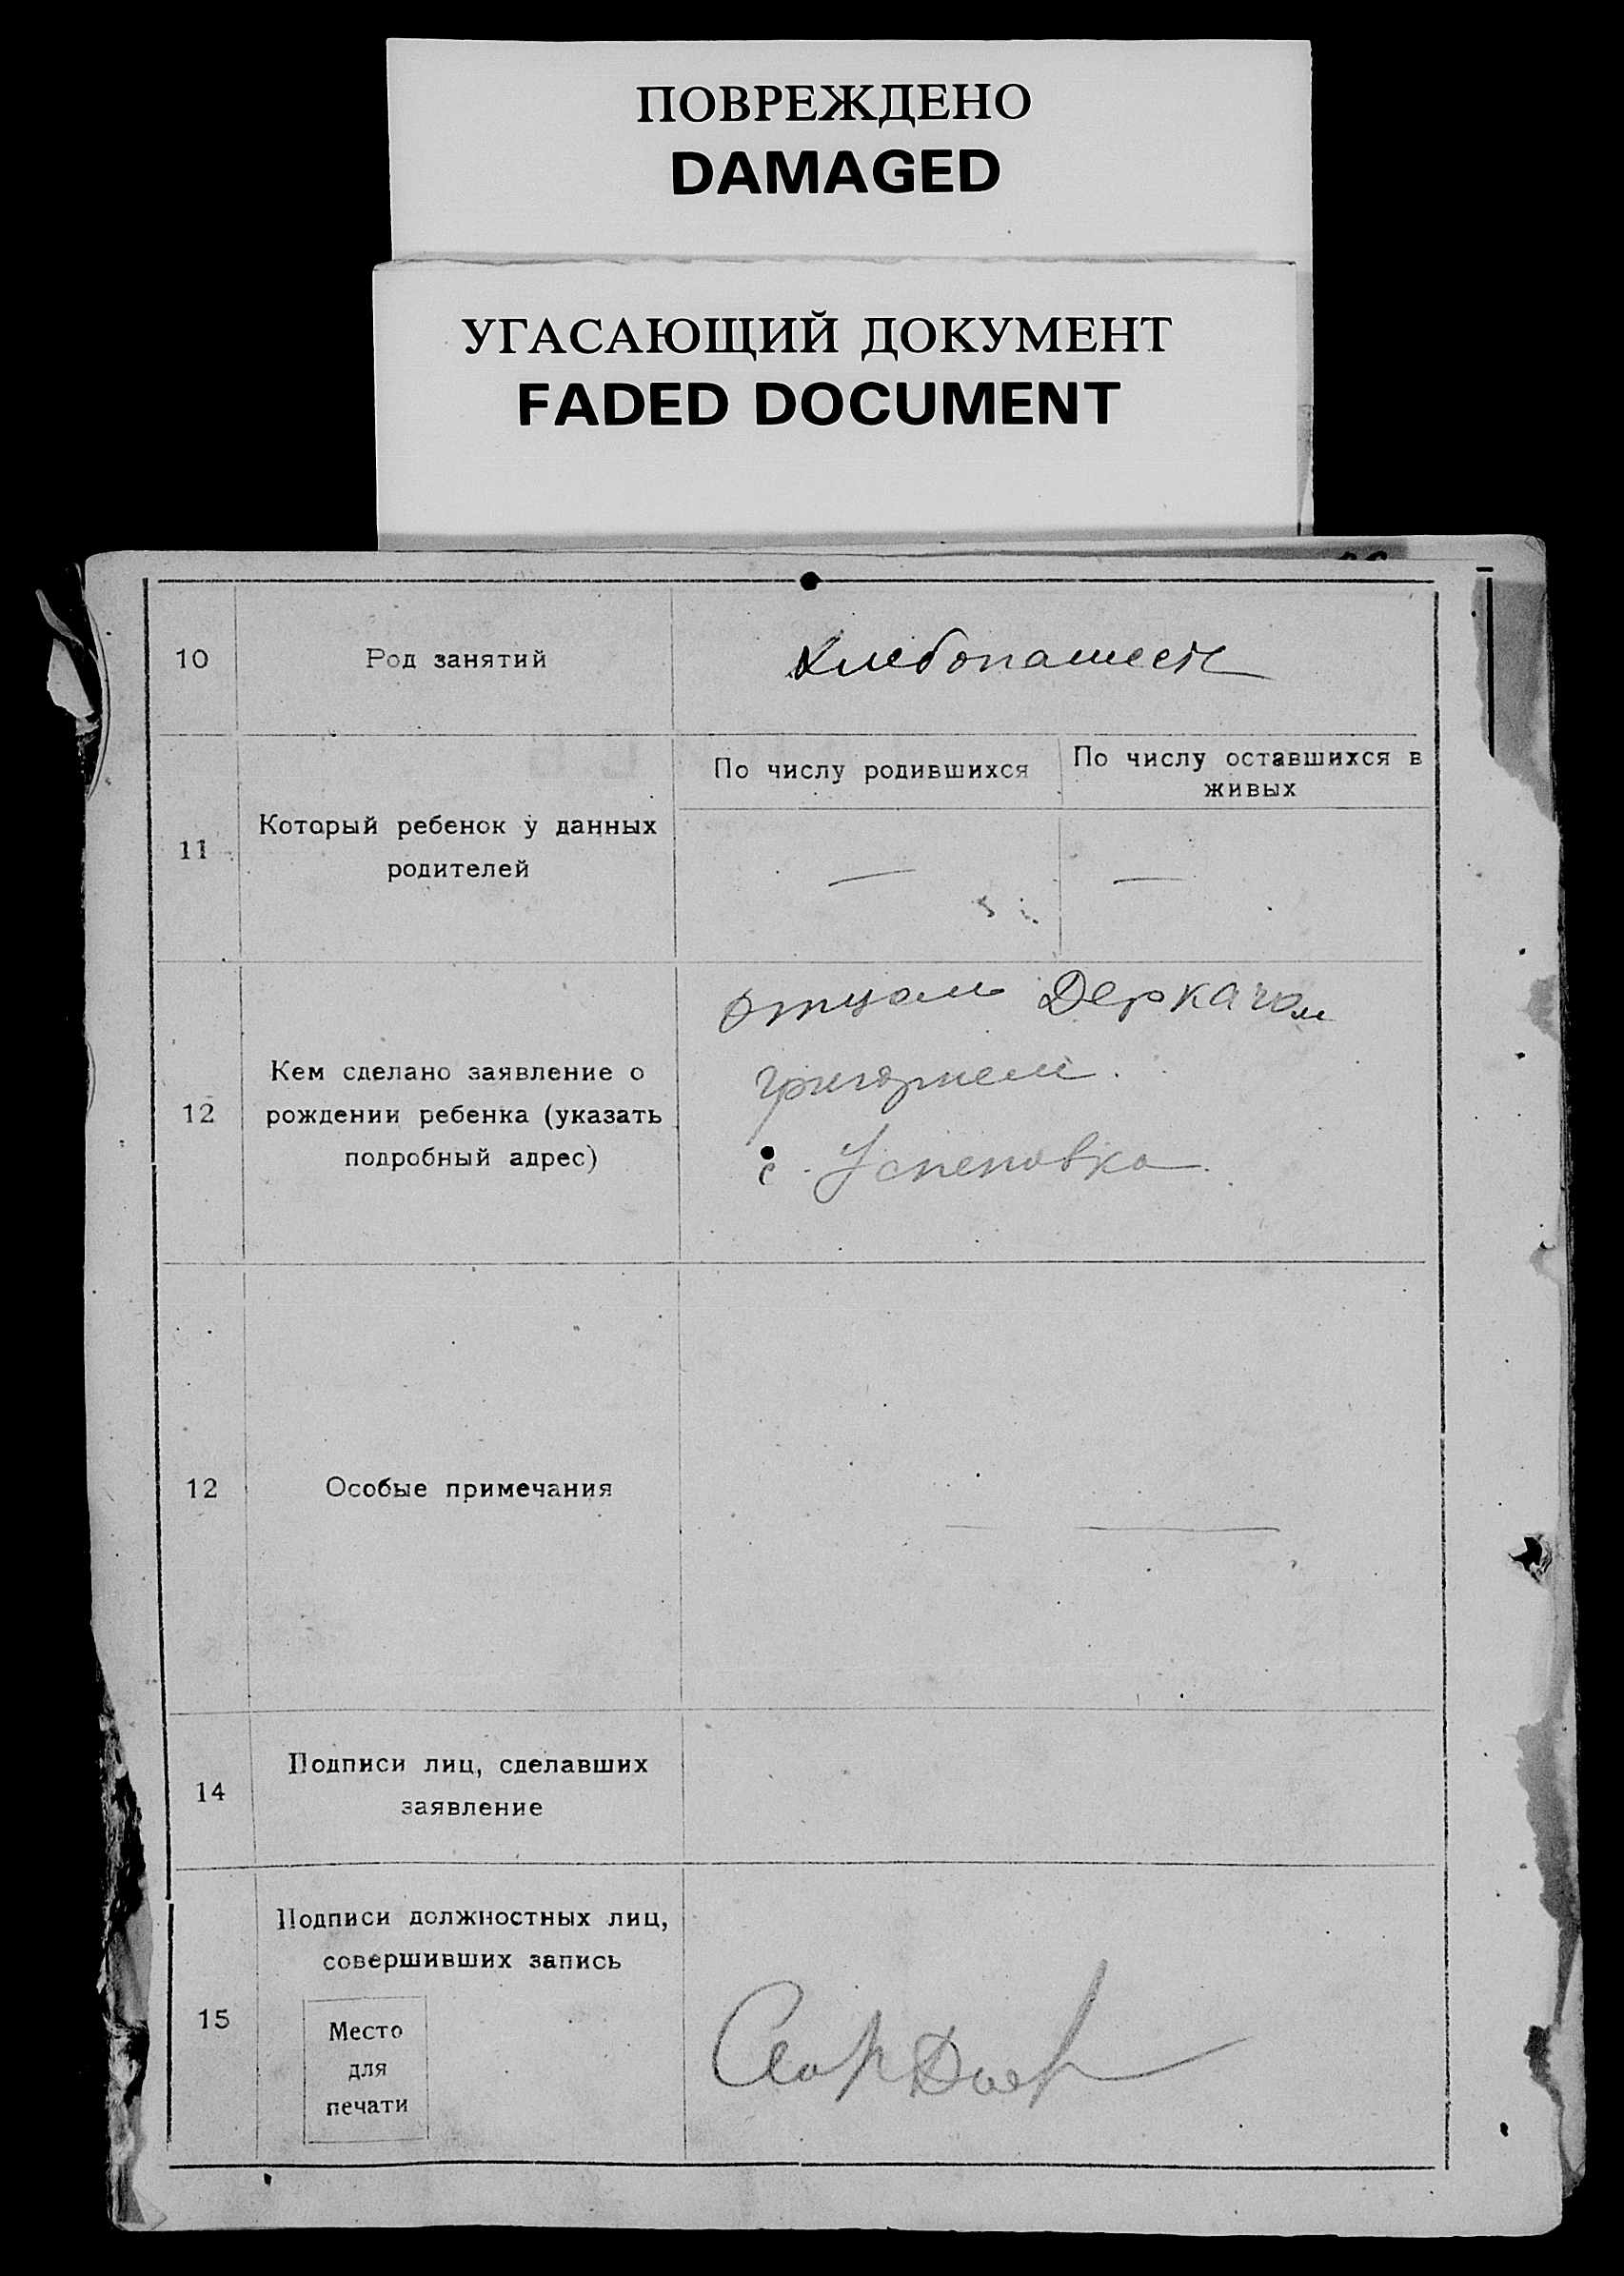 ПОВРЕЖДЕНО
DAMAGED
УГАСАЮЩИЙ ДОКУМЕНТ
FADED DOCUMENT
10
Род занятий
Хлебопашест
11
Который ребенок у данных
родителей
По числу родившихся
По числу оставшихся в
живых
—
—
12
Кем сделано заявление о
рождении ребенка (указать
подробный адрес)
отцом Деркачом
Григорием.
с. Успеновка.
12
Особые примечания
—
14
Подписи лиц, сделавших
заявление
15
Подписи должностных лиц,
совершивших запись
Место
для
печати